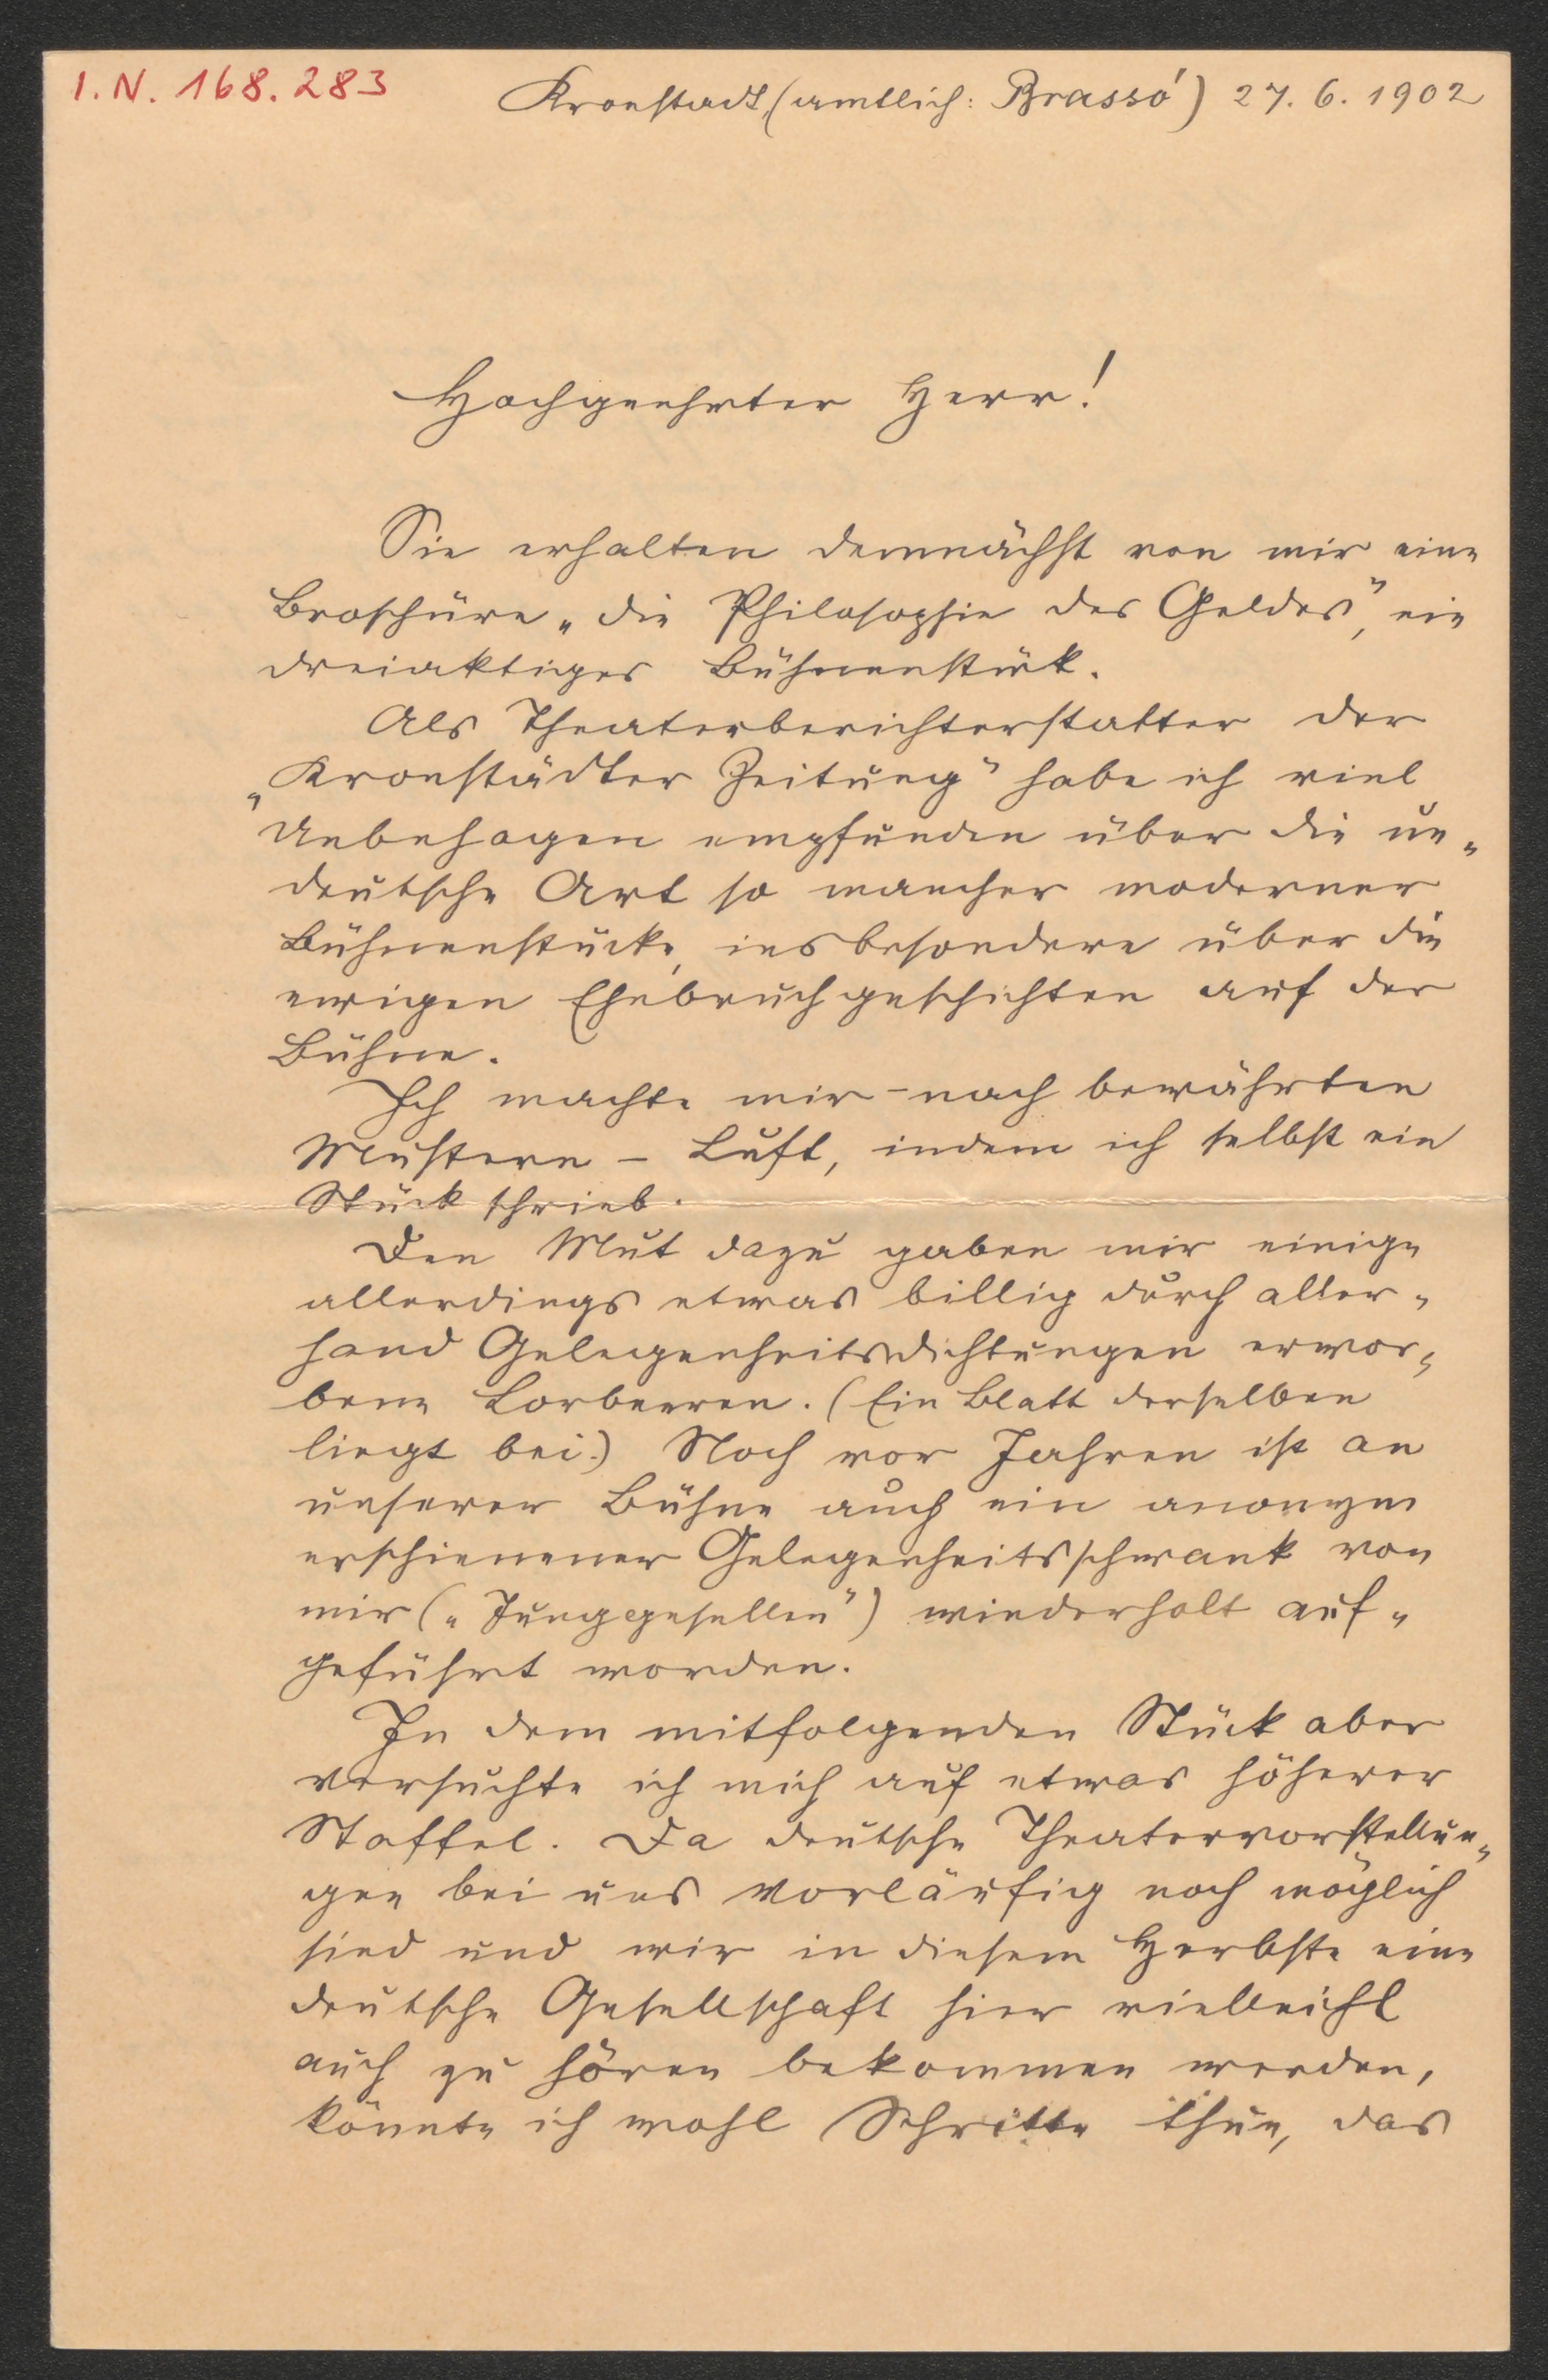 I.N. 168.283
Kronstadt, (amtlich: Brassó) 27. 6. 1902
Hochgeehrter Herr!
Sie erhalten demnächst von mir eine
Broschüre „die Philosophie des Geldes", ein
dreiaktiges Bühnenstück.
Als Theaterberichterstatter der
„Kronstädter Zeitung" habe ich viel
Unbehagen empfunden über die un-
deutsche Art so mancher moderner
Bühnenstücke, insbesondere über die
ewigen Ehebruchgeschichten auf der
Bühne.
Ich machte mir – nach bewährten
Mustern – Luft, indem ich selbst ein
Stück schrieb.
Den Mut dazu gaben mir einige
allerdings etwas billig durch aller-
hand Gelegenheitsdichtungen erwor-
bene Lorbeeren. (Ein Blatt derselben
liegt bei.) Noch vor Jahren ist an
unserer Bühne auch ein anonym
erschienener Gelegenheitsschwank von
mir („Junggesellen") wiederholt auf-
geführt worden.
In dem mitfolgenden Stück aber
versuchte ich mich auf etwas höherer
Staffel. Da deutsche Theatervorstellun-
gen bei uns vorläufig noch möglich
sind und wir in diesem Herbste eine
deutsche Gesellschaft hier vielleicht
auch zu hören bekommen werden,
könnte ich wohl Schritte thun, das